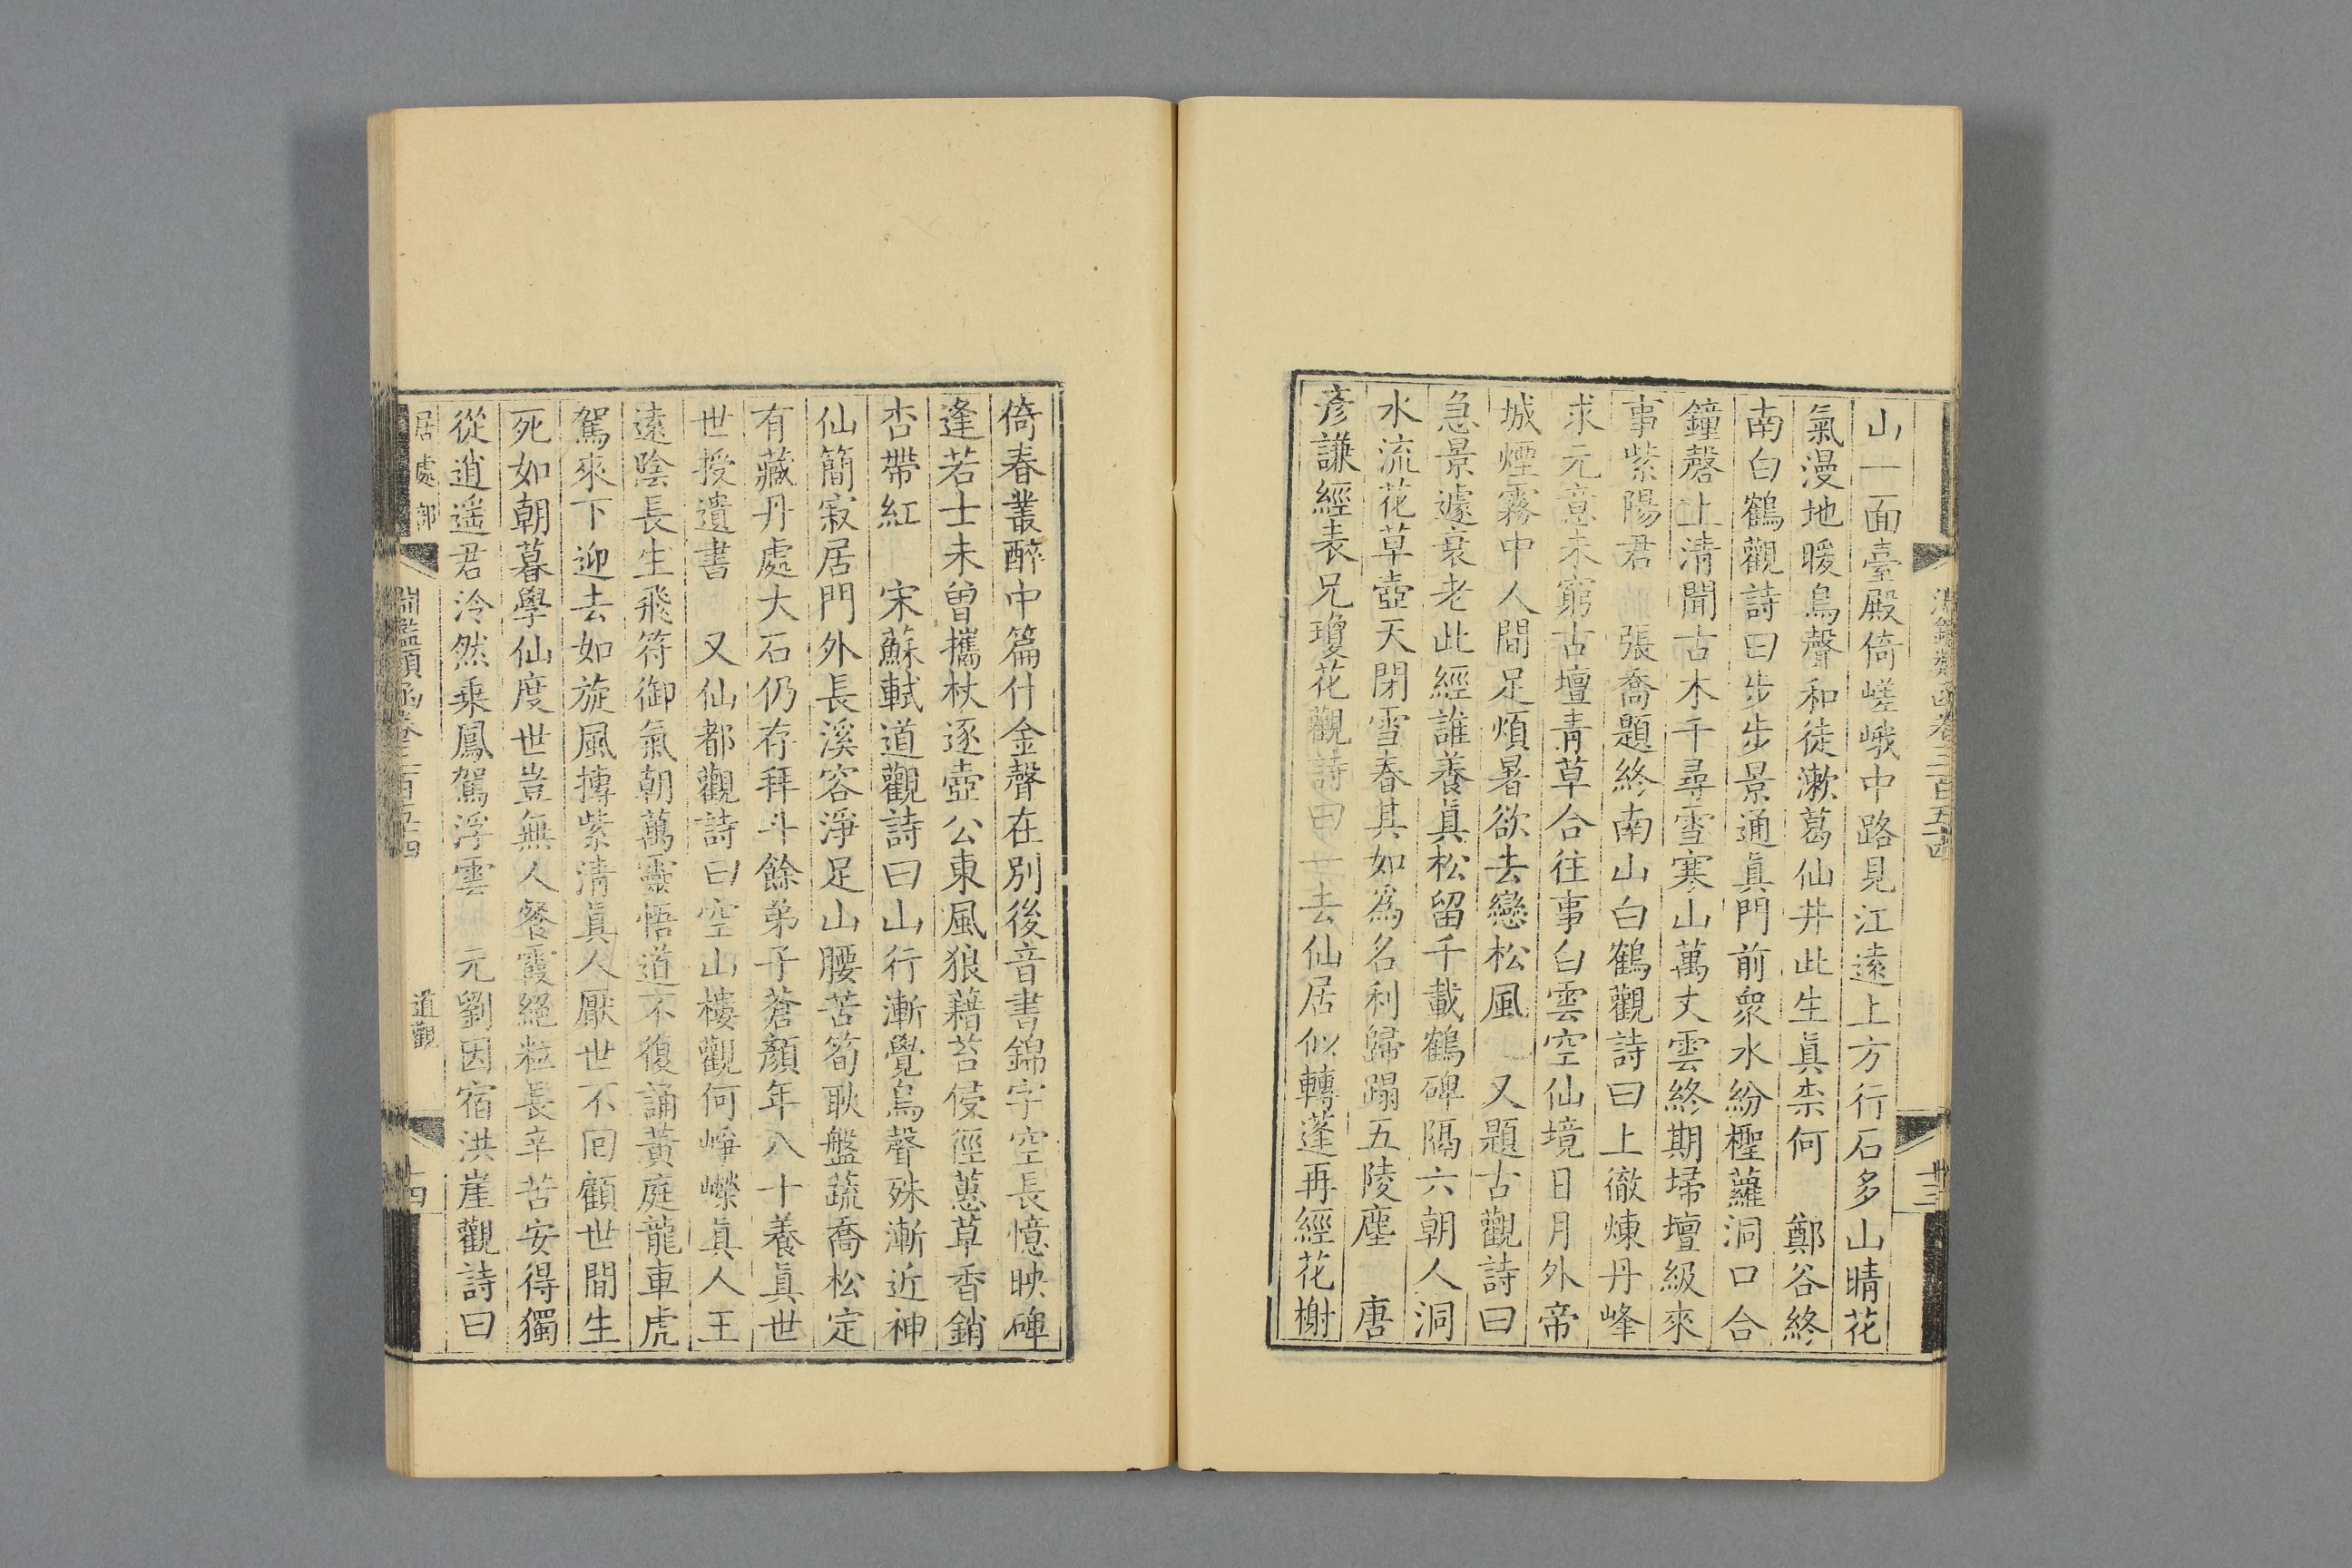 淵鑑類函卷三百五十四
廿三
山一面臺殿倚嵯峨中路見江遠上方行石多山晴花
氣漫地暖鳥聲和徒漱葛仙井此生真柰何　鄭谷終
南白鶴觀詩曰步步景通眞門前衆水紛檉蘿洞口合
鐘磬上清聞古木千尋雪寒山萬丈雲終期埽壇級來
事紫陽君　張喬題終南山白鶴觀詩曰上徹煉丹峰
求元意未窮古壇靑草合往事白雲空仙境日月外帝
城煙霧中人間足煩暑欲去戀松風　又題古觀詩曰
急景遽衰老此經誰養眞松留千載鶴碑隔六朝人洞
水流花草壺天閉雪春其如爲名利歸蹋五陵塵　唐
彥謙經表兄瓊花觀詩曰一去仙居似轉蓬再經花榭
倚春叢醉中篇什金聲在別後音書錦字空長憶映碑
逢若士未曾攜杖逐壺公東風狼藉苔侵徑蕙草香銷
杏帶紅　宋蘇軾道觀詩曰山行漸覺鳥聲殊漸近神
仙簡寂居門外長溪容淨足山腰苦筍耿盤蔬喬松定
有藏丹處大石仍存拜斗餘弟子蒼顏年八十養眞世
世授遺書　又仙都觀詩曰空山樓觀何崢嶸眞人王
遠陰長生飛符御氣朝萬靈悟道不復誦黃庭龍車虎
駕來下迎去如旋風摶紫清眞人厭世不回顧世間生
死如朝暮學仙度世豈無人餐霞絕粒長辛苦安得獨
從逍遥君泠然乘鳳駕浮雲　元劉因宿洪崖觀詩曰
居處部　淵鑑類函卷三百五十四　道觀
廿四